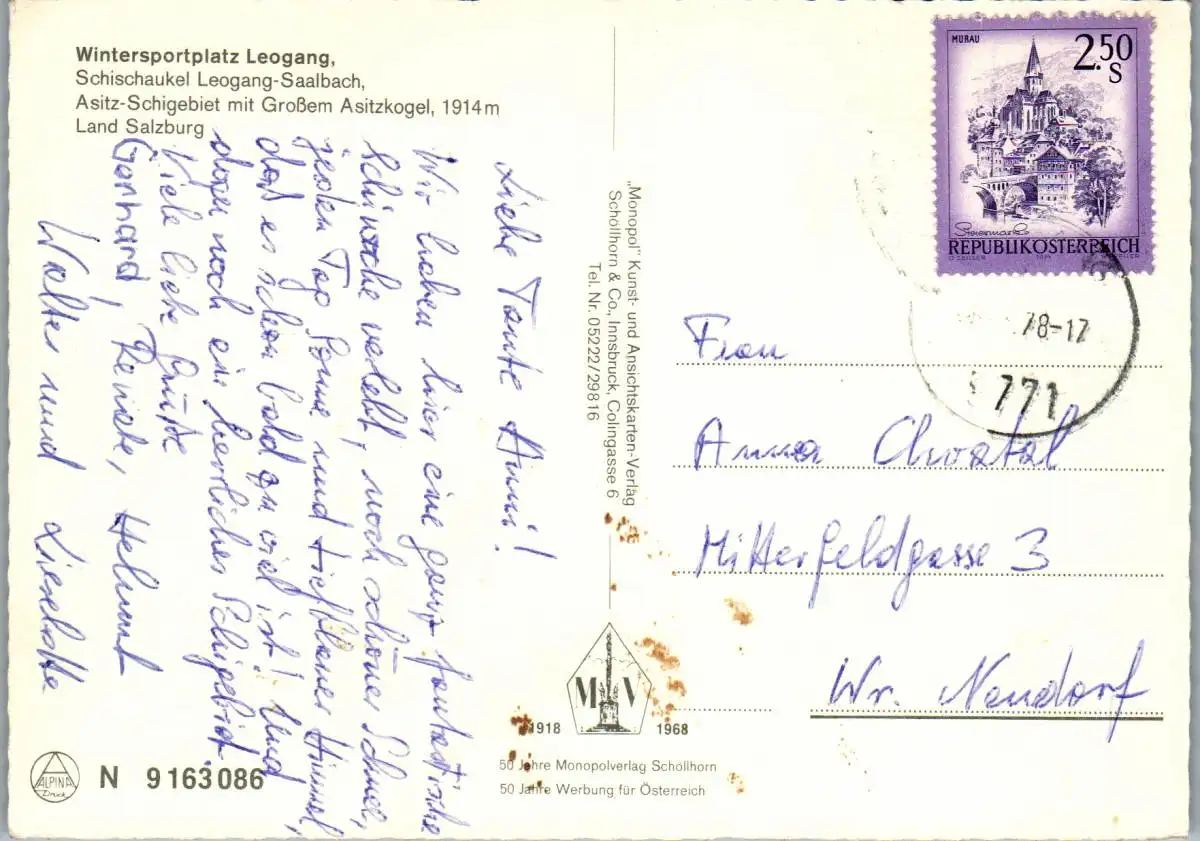 Wintersportplatz Leogang,
Schischaukel Leogang-Saalbach,
Asitz-Schigebiet mit Großem Asitzkogel, 1914 m
Land Salzburg
Liebe Tante Anni!
Wir haben hier eine ganz fantastische
Schiwoche verlebt, noch schöner Schnee,
jeden Tag Sonne und tiefblauer Himmel,
daß es schon bald zu viel ist! Und
dazu noch ein herrliches Schigebiet.
Viele liebe Grüße
Gerhard, Renate, Helmut
Walter und Lieselotte
„Monopol" Kunst- und Ansichtskarten-Verlag
Schöllhorn & Co., Innsbruck, Colingasse 6
Tel. Nr. 05222/29816
MURAU
2.50
S
Steiermark
REPUBLIK ÖSTERREICH
78-17
771
Frau
Anna Chvatal
Mitterfeldgasse 3
Wr. Neudorf
M V
1918 1968
50 Jahre Monopolverlag Schöllhorn
50 Jahre Werbung für Österreich
ALPINA
Druck
N 9163086